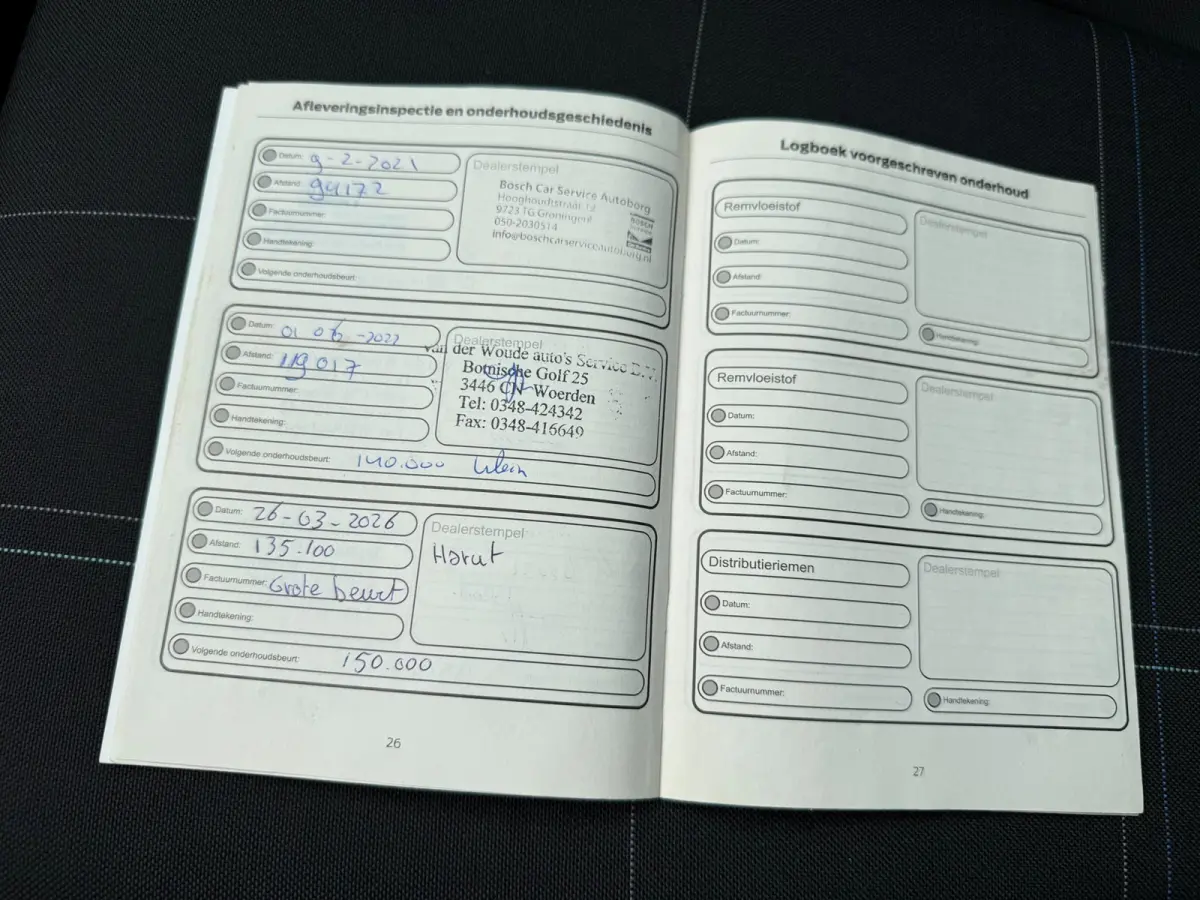 Afleveringsinspectie en onderhoudsgeschiedenis
Datum: 9-2-2021
Afstand: 94172
Factuurnummer:
Handtekening:
Volgende onderhoudsbeurt:
Dealerstempel
Bosch Car Service Autoborg
9723 TG Groningen
050-2030514
info@boschcarserviceautoborg.nl
BOSCH
Datum: 01 06 -2022
Afstand: 119017
Factuurnummer:
Handtekening:
Volgende onderhoudsbeurt: 140.000 klein
Dealerstempel
van der Woude auto's Service B.V.
Botnische Golf 25
3446 CN Woerden
Tel: 0348-424342
Fax: 0348-416649
Datum: 26-03-2026
Afstand: 135.100
Factuurnummer: Grote beurt
Handtekening:
Volgende onderhoudsbeurt: 150.000
Dealerstempel:
Harut
26
Logboek voorgeschreven onderhoud
Remvloeistof
Datum:
Afstand:
Factuurnummer:
Dealerstempel
Handtekening:
Remvloeistof
Datum:
Afstand:
Factuurnummer:
Dealerstempel
Handtekening:
Distributieriemen
Datum:
Afstand:
Factuurnummer:
Dealerstempel
Handtekening:
27